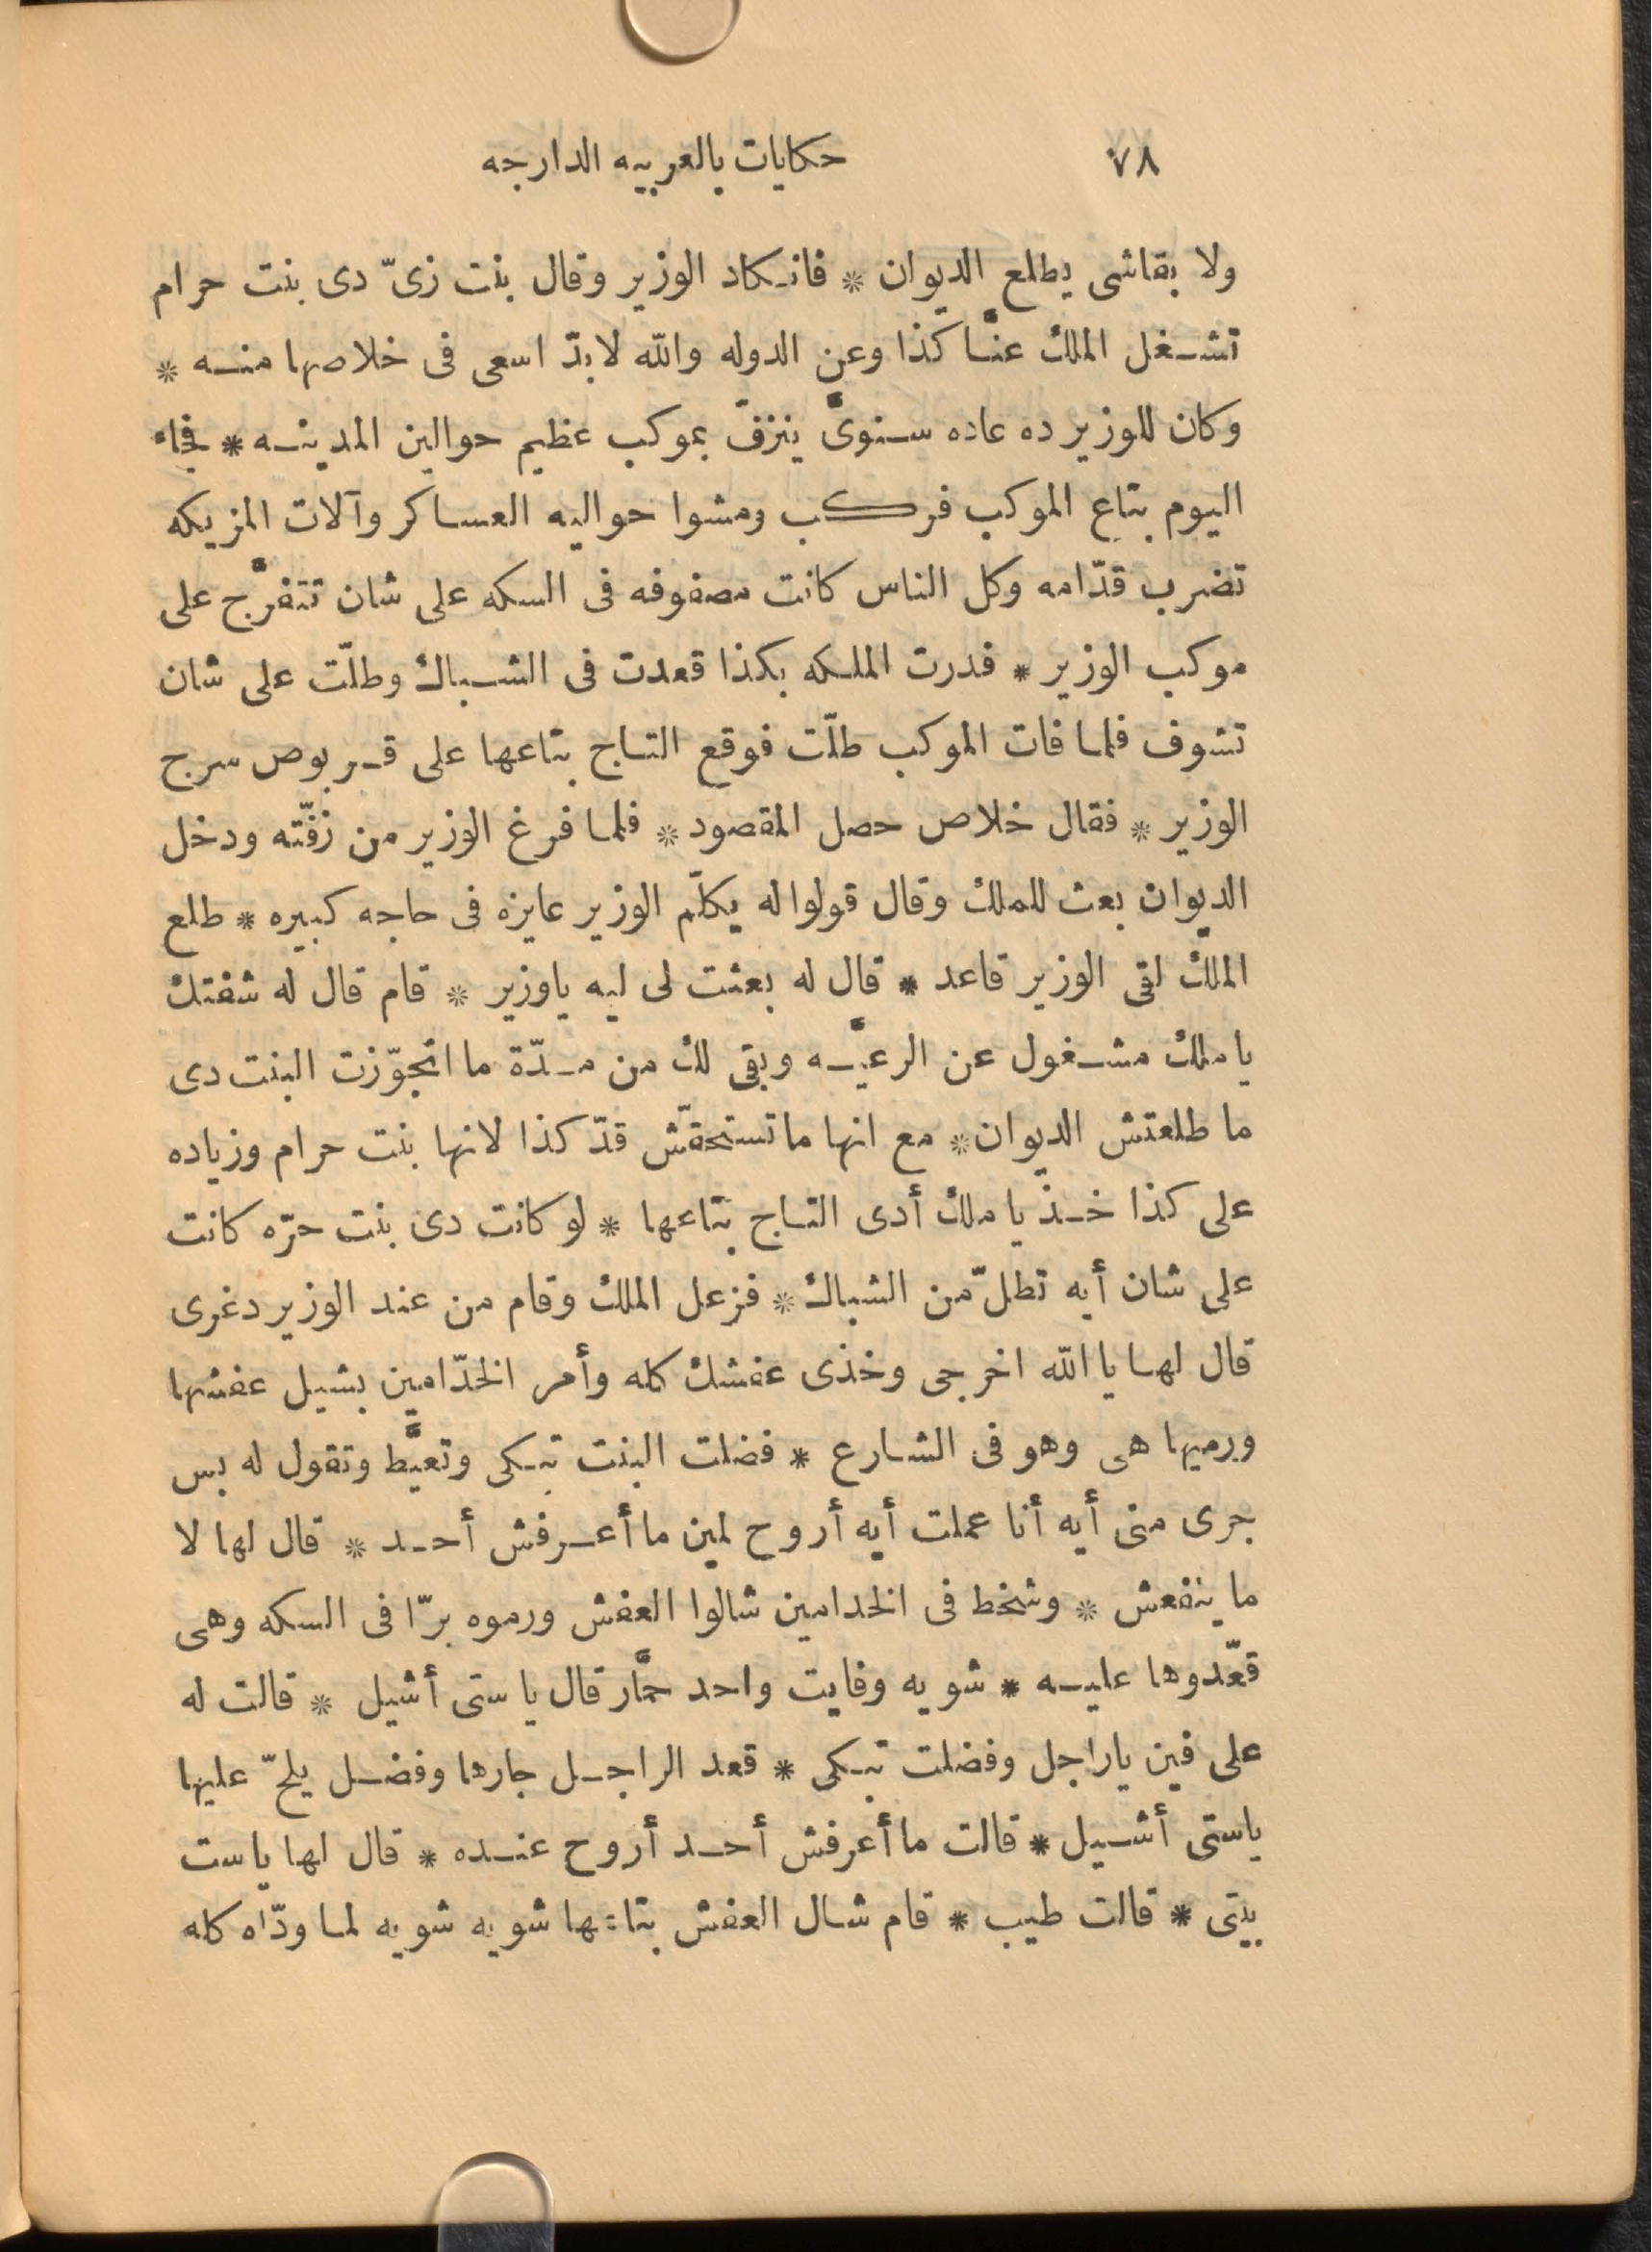 ٧٨ حكايات بالعربيه الدارجه
ولا بقاشى يطلع الديوان * فانكاد الوزير وقال بنت زىّ دى بنت حرام
تشغل الملك عنّا كذا وعن الدوله والله لابدّ اسعى فى خلاصها منه *
وكان للوزير ده عاده سنوىّ ينزفّ بموكب عظيم حوالين المدينه * فجاء
اليوم بتاع الموكب فركب ومشوا حواليه العساكر وآلات المزيكه
تضرب قدّامه وكل الناس كانت مصفوفه فى السكه على شان تتفرّج على
موكب الوزير * فدرت الملكه بكذا قعدت فى الشباك وطلّت على شان
تشوف فلما فات الموكب طلّت فوقع التاج بتاعها على قربوص سرج
الوزير * فقال خلاص حصل المقصود * فلما فرغ الوزير من زفّته ودخل
الديوان بعث للملك وقال قولوا له يكلّم الوزير عايزه فى حاجه كبيره * طلع
الملك لقى الوزير قاعد * قال له بعثت لى ليه ياوزير * قام قال له شفتك
يا ملك مشغول عن الرعيّه وبقى لك من مدّة ما اتجوّزت البنت دى
ما طلعتش الديوان * مع انها ماتستحقّش قدّ كذا لانها بنت حرام وزياده
على كذا خذ يا ملك أدى التاج بتاعها * لو كانت دى بنت حرّه كانت
على شان أيه تطلّ من الشباك * فزعل الملك وقام من عند الوزير دغرى
قال لها يا الله اخرجى وخذى عفشك كله وأمر الخدّامين بشيل عفشها
ورميها هى وهو فى الشارع * فضلت البنت تبكى وتعيّط وتقول له بس
جرى منى أيه أنا عملت أيه أروح لمين ما أعرفش أحد * قال لها لا
ما ينفعش * وشخط فى الخدامين شالوا العفش ورموه برّا فى السكه وهى
قعّدوها عليه * شويه وفايت واحد حمّار قال يا ستى أشيل * قالت له
على فين ياراجل وفضلت تبكى * قعد الراجل جارها وفضل يلحّ عليها
ياستى أشيل * قالت ما أعرفش أحد أروح عنده * قال لها ياست
بيتى * قالت طيب * قام شال العفش بتاعها شويه شويه لما ودّاه كله